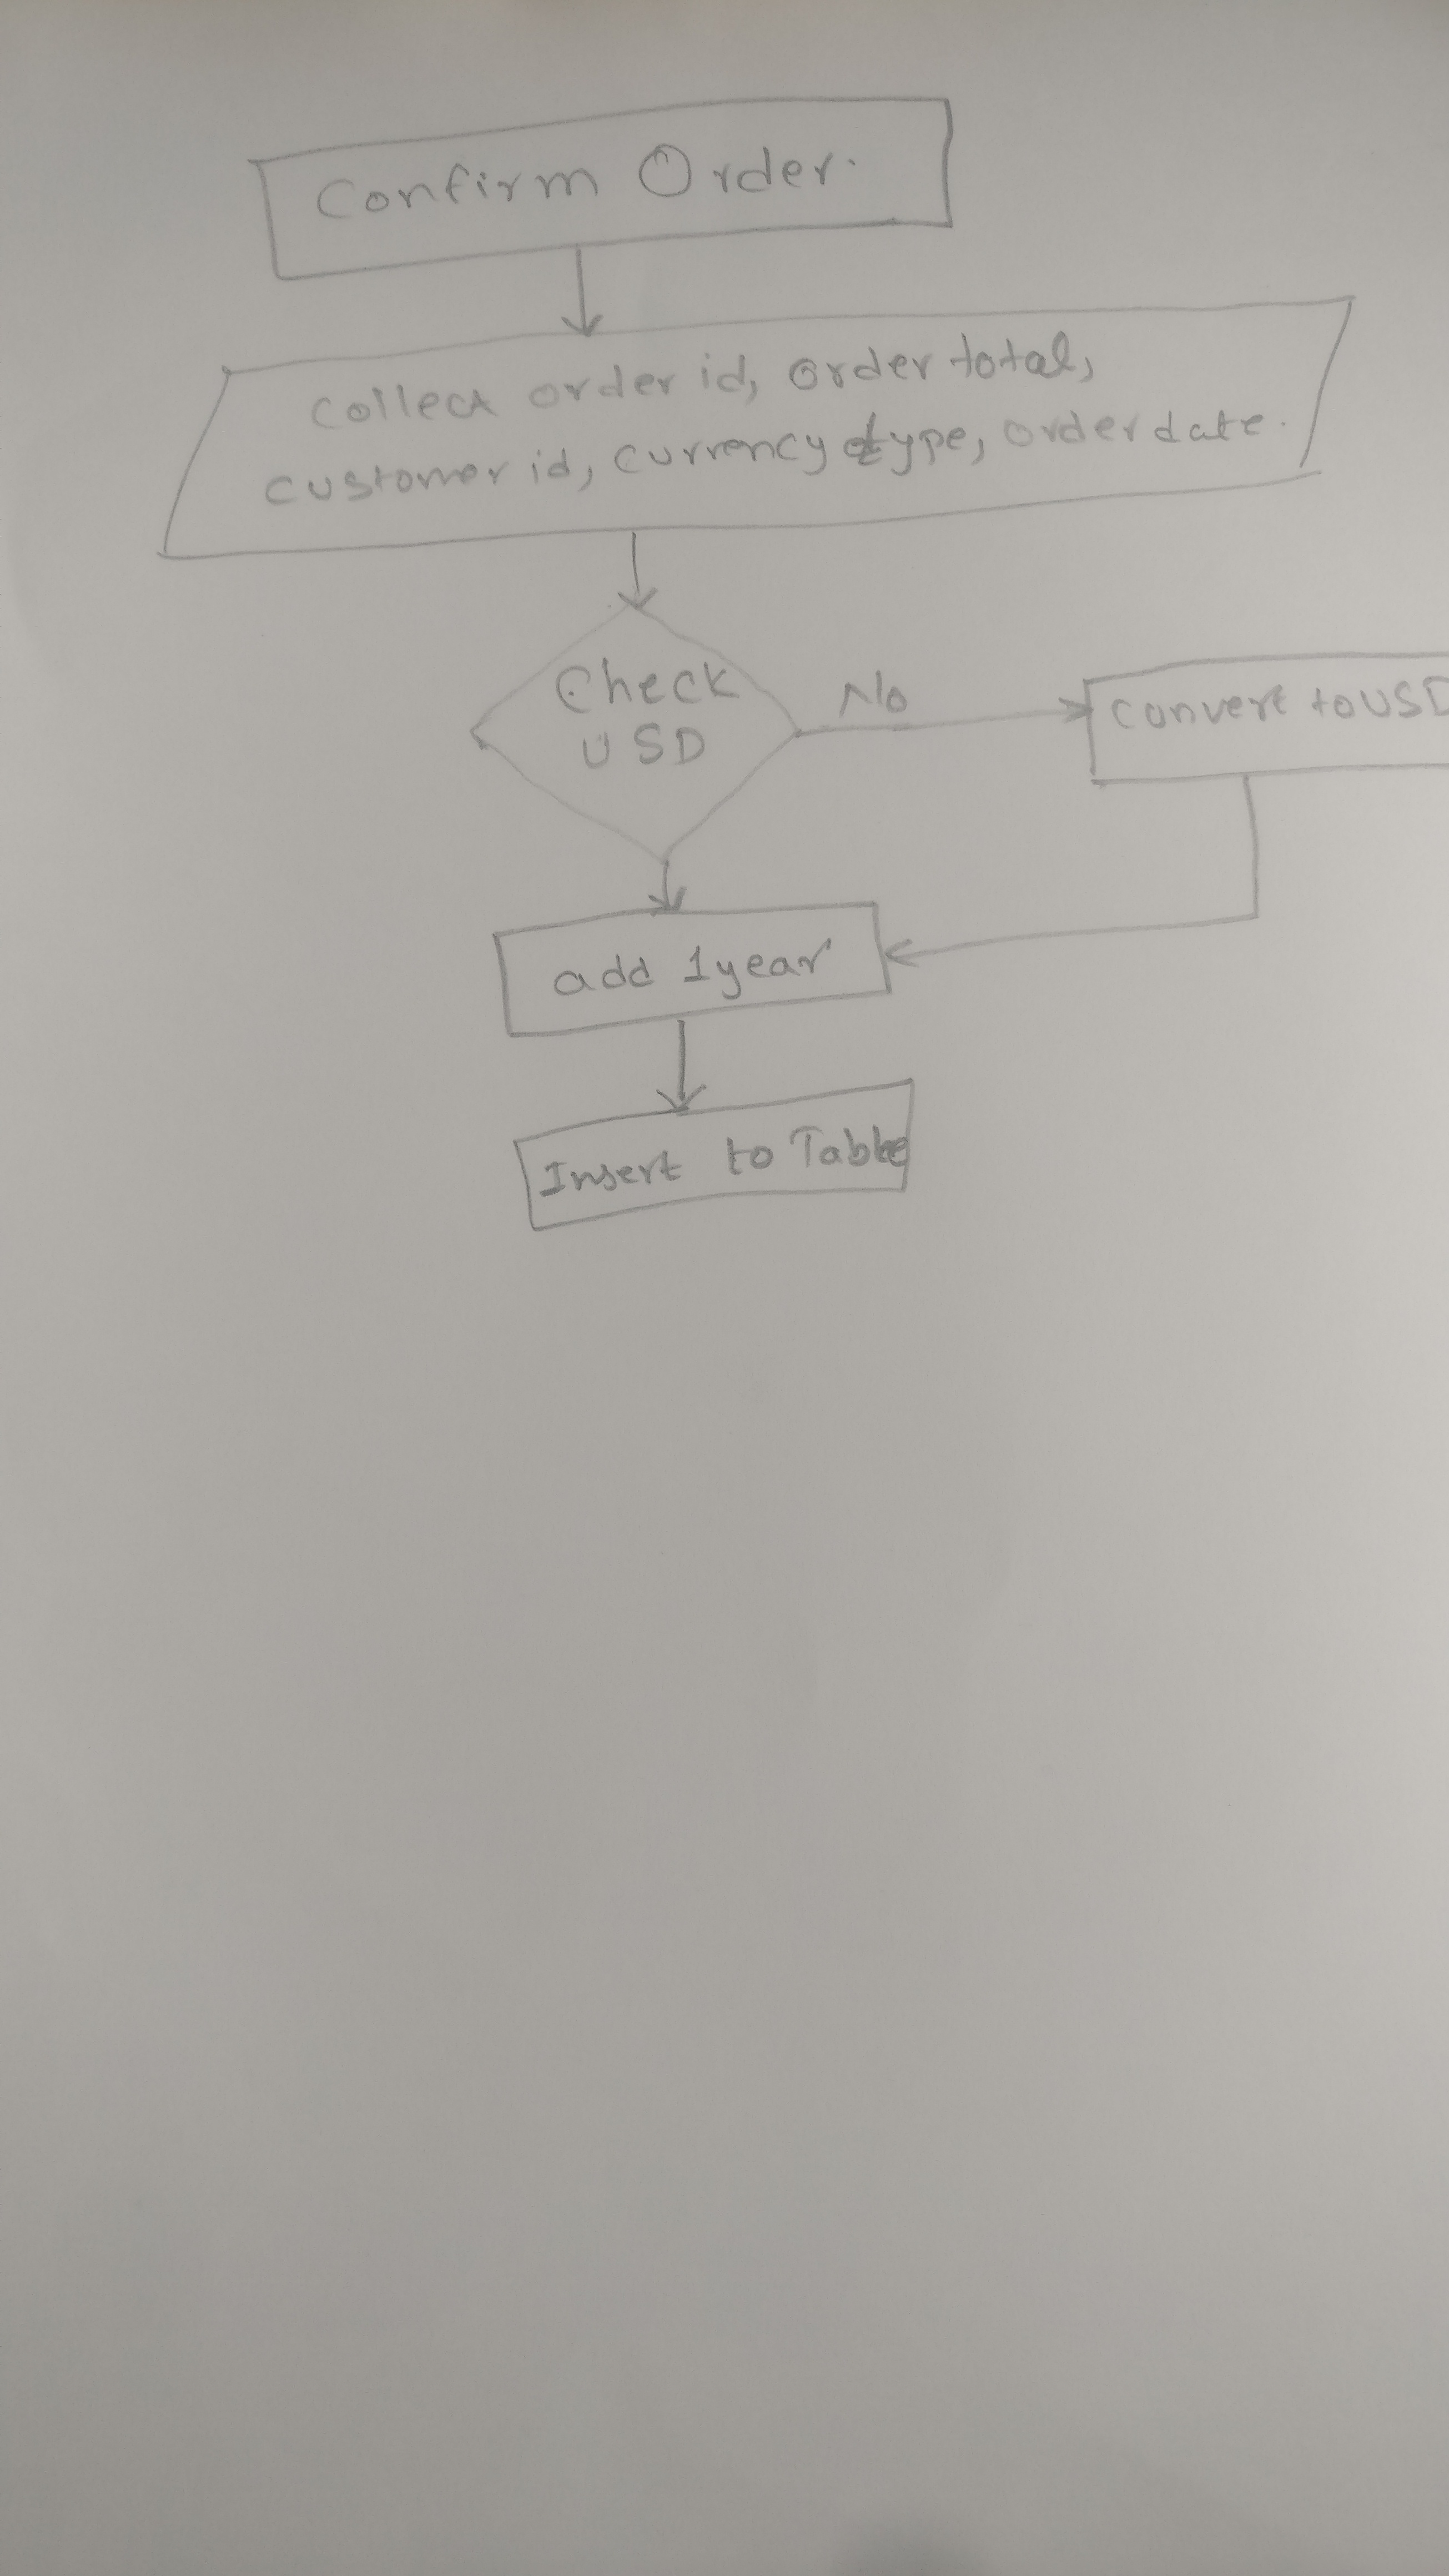 Confirm Order.
Collect order id, order total,
customer id, currency type, order date.
Check
USD
No
Convert to USD
add 1 year
Insert to Table